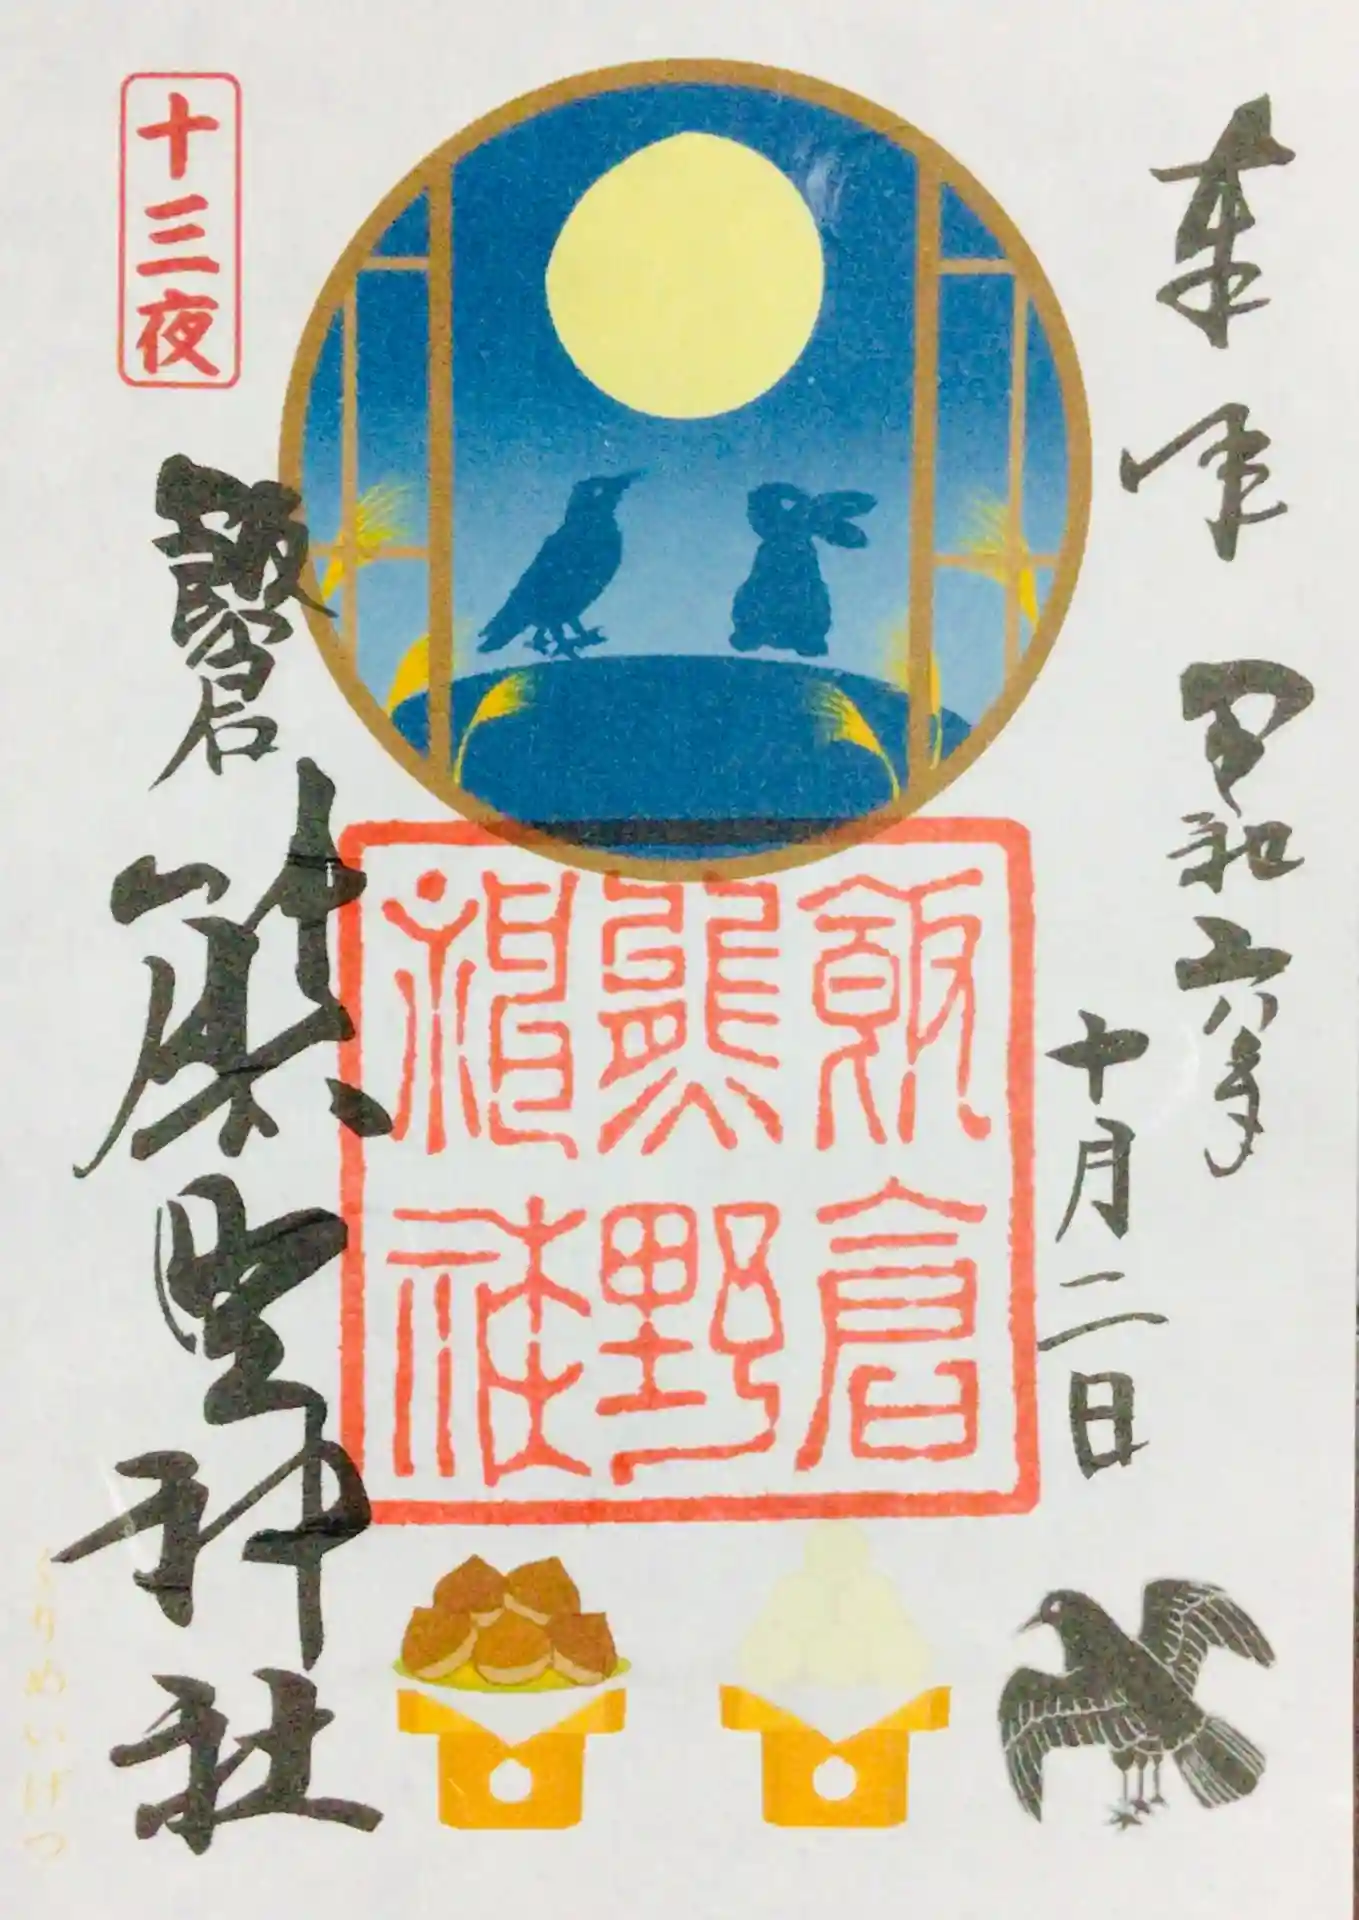 奉拝
令和六年
十月二日
十三夜
飯倉
熊野神社
飯倉
熊野
神社
くりめいげつ